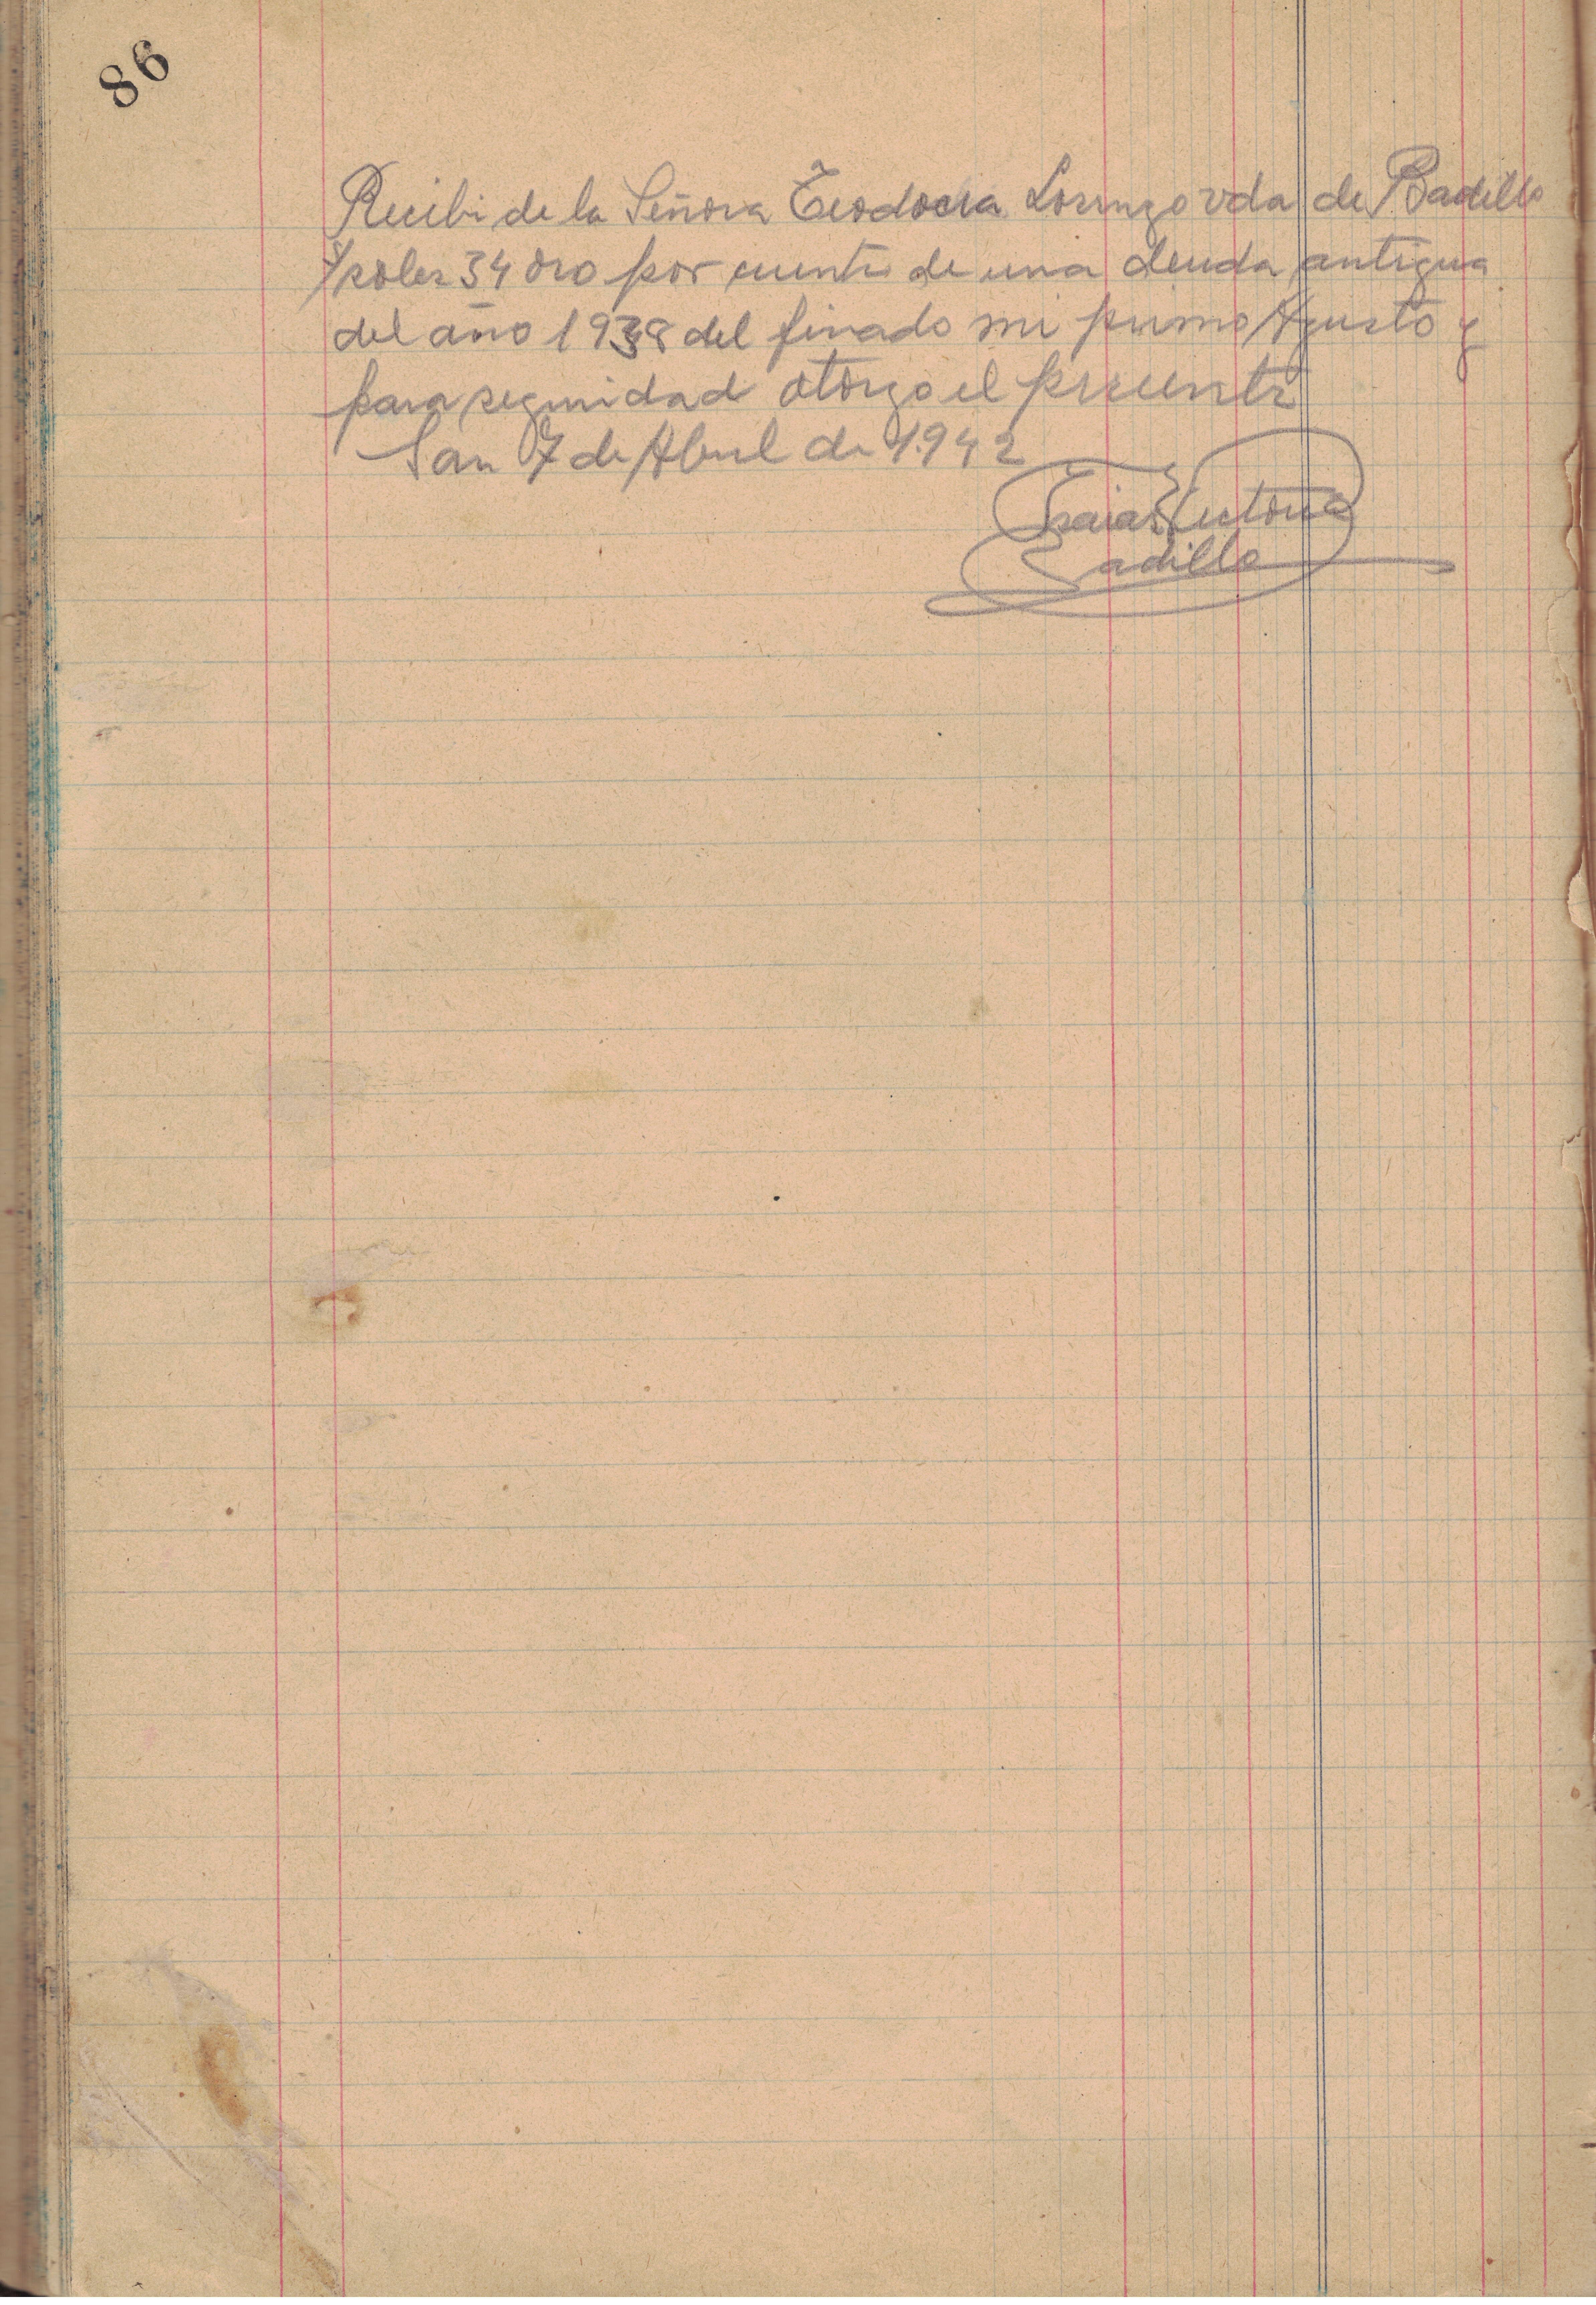 86
Recibi de la Señora Teodocia Lorenzo vda de Badillo
soles 34 oro por cuenta de una deuda antigua
del año 1938 del finado mi primo Agusto y
para seguridad otorgo el presente
San 7 de Abril de 1942
Isaias Victoria
Badillo